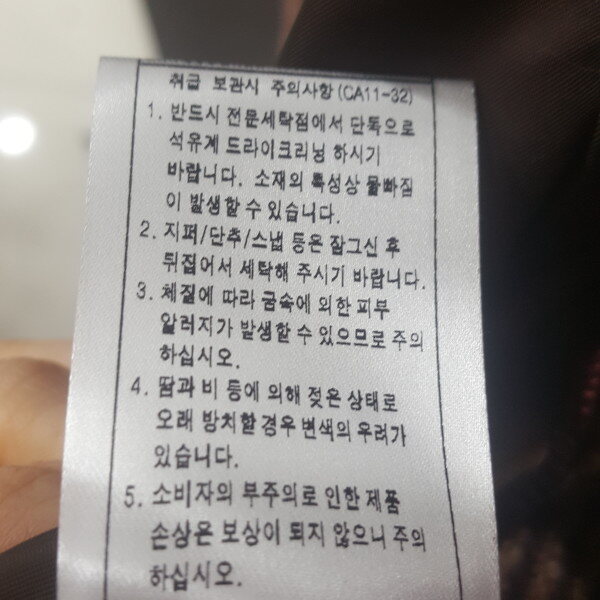 취급 보관시 주의사항(CA11-32)
1. 반드시 전문세탁점에서 단독으로
석유계 드라이크리닝 하시기
바랍니다. 소재의 특성상 물빠짐
이 발생할 수 있습니다.
2. 지퍼/단추/스냅 등은 잠그신 후
뒤집어서 세탁해 주시기 바랍니다.
3. 체질에 따라 금속에 의한 피부
알러지가 발생할 수 있으므로 주의
하십시오.
4. 땀과 비 등에 의해 젖은 상태로
오래 방치할 경우 변색의 우려가
있습니다.
5. 소비자의 부주의로 인한 제품
손상은 보상이 되지 않으니 주의
하십시오.